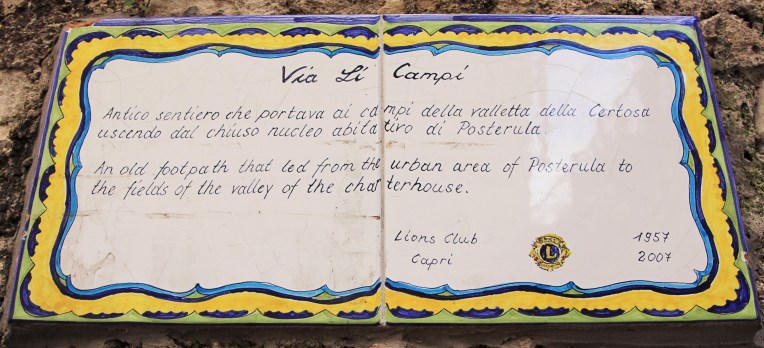 Via Li Campi
Antico sentiero che portava ai campi della valletta della Certosa
uscendo dal chiuso nucleo abitativo di Posterula.
An old footpath that led from the urban area of Posterula to
the fields of the valley of the charterhouse.
Lions Club 1957
Capri 2007
L